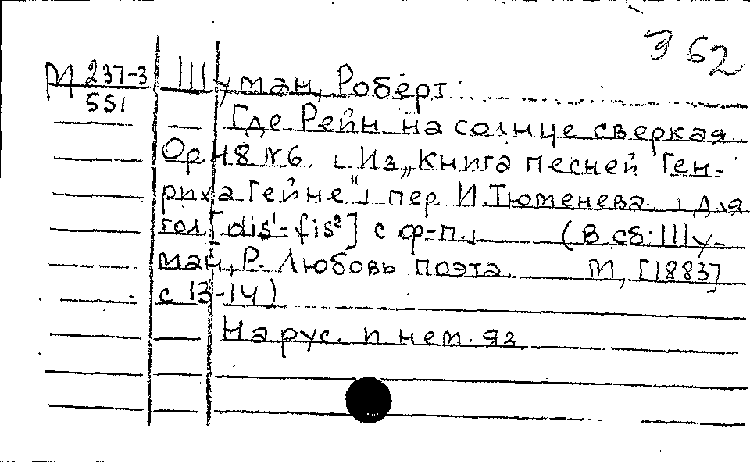 362
М 237-3
551
Шуман, Роберт.
Где Рейн на солнце сверкая.
Op 48 №6. [Из „Книга песней Ген-
риха Гейне"] пер И.Тютенева. , для
гол [dis¹-fis²] с ф-п.] (В сб: Шу-
ман, Р. Любовь поэта. М, [1883]
с 13-14)
На рус. и нем. яз